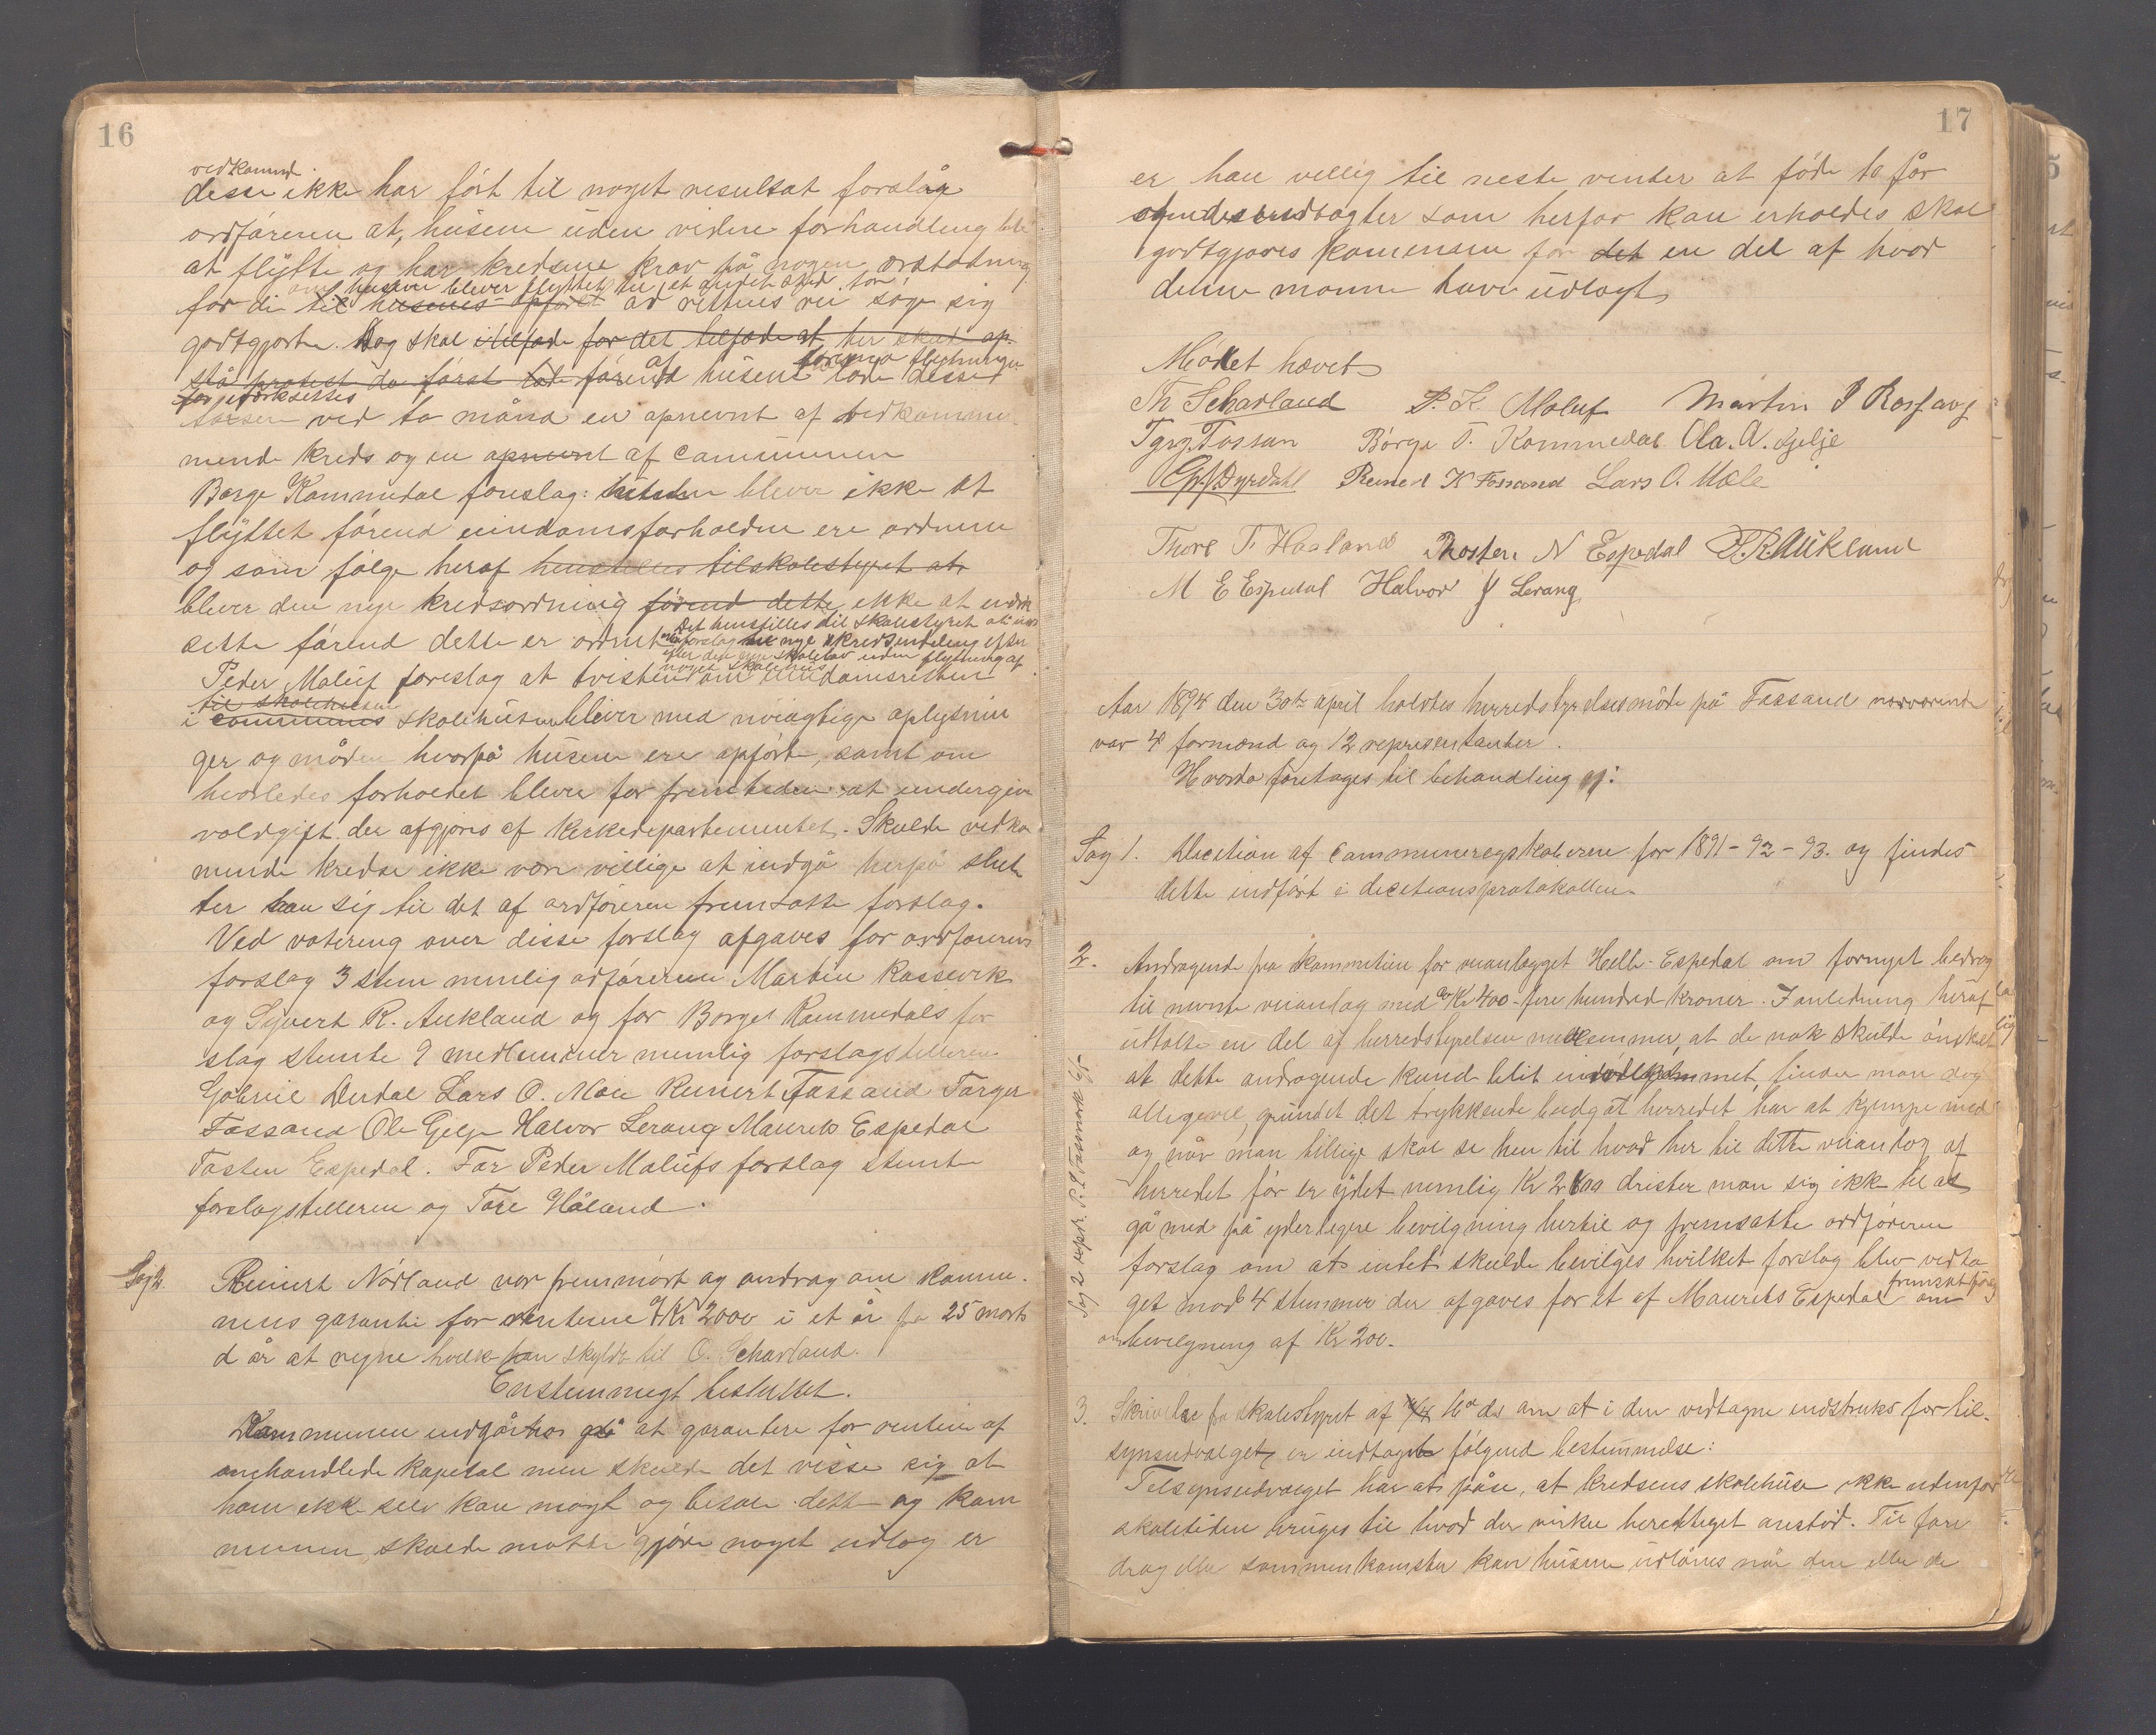 16
vedkommd.
desse ikke har ført til noget resultat foreslår
ordføreren at, husene uden videre forhandling bli
at flytte og har kredsene krav på nogen erstatning
om husene blever flyttet til et andet sted for
for di til husenes opført ad rettens vei søge sig
godtgjort. Dog skal for det tilfæde at her skal op-
stå protest da først husene lade desse
for ivørksettes
ved to mænd en opnevnt af vedkomme
mende kreds og en opnevnt af Communen
Børge Kommedal foreslag: blever ikke at
flyttet førend eiendomsforholdene ere ordnene
og som følge heraf henstilles til skolestyret at
blever den nye kredsordning førend dette ikke at iverk
sette førend dette er ordnet Det henstilles til skolestyret at
forslag nye skredsindeling efter
efter den nye skolelov uden flytning af
noget skolehus
Peder Maluf foreslag at tvisten om eindomsretten
til skolehusene
i communes skolehusene bliver med nøiagtige oplysnin
ger og måden hvorpå husene ere opførte, samt om
hvorledes forholdet blever for fremtiden at undergive
voldgift der afgjøres af Kirkedepartementet. Skulde vedko
mende kredse ikke være villige at indgå herpå slut
ter han sig til det af ordføreren fremsatte forslag.
Ved votering over disse forslag afgaves for ordførerens
forslag 3 stem nemlig ordføreren Martin Rossevik
og Syvert R. Aukland og for Børges Kommedals for
slag stemte 9 medlemmer nemlig forslagstilleren
Gabriel Dirdal Lars O. Mæle Reinert Fossand Tørger
Fossand Ole Gjelje Halvor Lerang Maurits Espedal
Tosten Espedal. For Peder Malufs forslag stemte
forslagstilleren og Tore Håland.
Sag 4. Reinert Nórland var fremmørt og androg om kommu-
nens garanti for renterne af Kr 2000 i et år fra 25 marts
d år at regne hvilke han skylder til O. Scharland.
Enstemmigt besluttet.
Kommunen indgår på at garantere for rentene af
omhandlede kapital men skulde det visse sig at
han ikke selv kan magt og betale dette og kom
munen skulde måtte gjøre noget udlæg er
17
er han villig til neste vinter at føde to får
og indtægter som herfor kan erholdes skal
godtgjøres komunen for det en del af hvad
denne monne have udlagt
Mødet hævet
Th Scharland P. K. Maluf Martin J Rossavig
Tørg. Fossan Børge T. Kommedal Ola. A. Gjelje
G. J. Dyrdahl Reinert K Fossand Lars O. Mæle
Thore T. Haaland Thosten N Espedal S. R. Aukland
M E Espedal Halvor J Lerang
Aar 1894 den 30te april holdtes herredstyrelsesmøde på Fossand nærværende
var 4 formænd og 12 representanter.
Hvorda foretages til behandling af:
Sag 1. Decition af Communeregnskaberne for 1891-92-93. og findes
dette indført i decitionsprotokollen.
2. Andragende fra Kommitteen for veianlægget Helle-Espedal om fornyet bedrag
til nevnte veianlag med Kr 400 - fire hundred kroner. I anledning heraf
udtalte en del af herredstyrelsen medlemmer, at de nok skulde ønsket
at dette andragende kund blit imødekommet, finder man dog
alligevel, grundet det trykkende budget herredet har at kjempe med
og når man tillige skal se hen til hvad her til dette veianlæg af
herredet før er ydet nemlig Kr 2600 drister man sig ikke til at
gå med på yderligere bevilgning hertil og fremsatte ordføreren
forslag om at intet skulde bevilges hvilket forslag blev vedta
get mod 4 stemmer der afgaves for et af Maurits Espedal fremsat forslag om
om bevilgning af Kr 200.
Sag 2 repr. P. S Fannord
3. Skrivelse fra skolestyret af 16 ds om at i den vedtagne indstruks for til-
synsudvalget er indtaget følgend bestemmelse:
Tilsynsudvalget har at påse, at kredsens skolehuse ikke udenfor
skoletiden bruges til hvad der virker berettiget anstød. Til fore
drag eller sammenkomster kan husene udlånes når den eller de